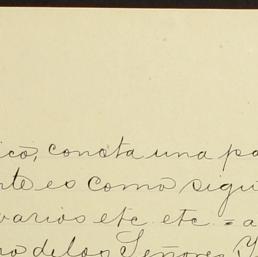 ico, consta una pa
nte es como sigui
varios etc etc = a
no de los Señores Y